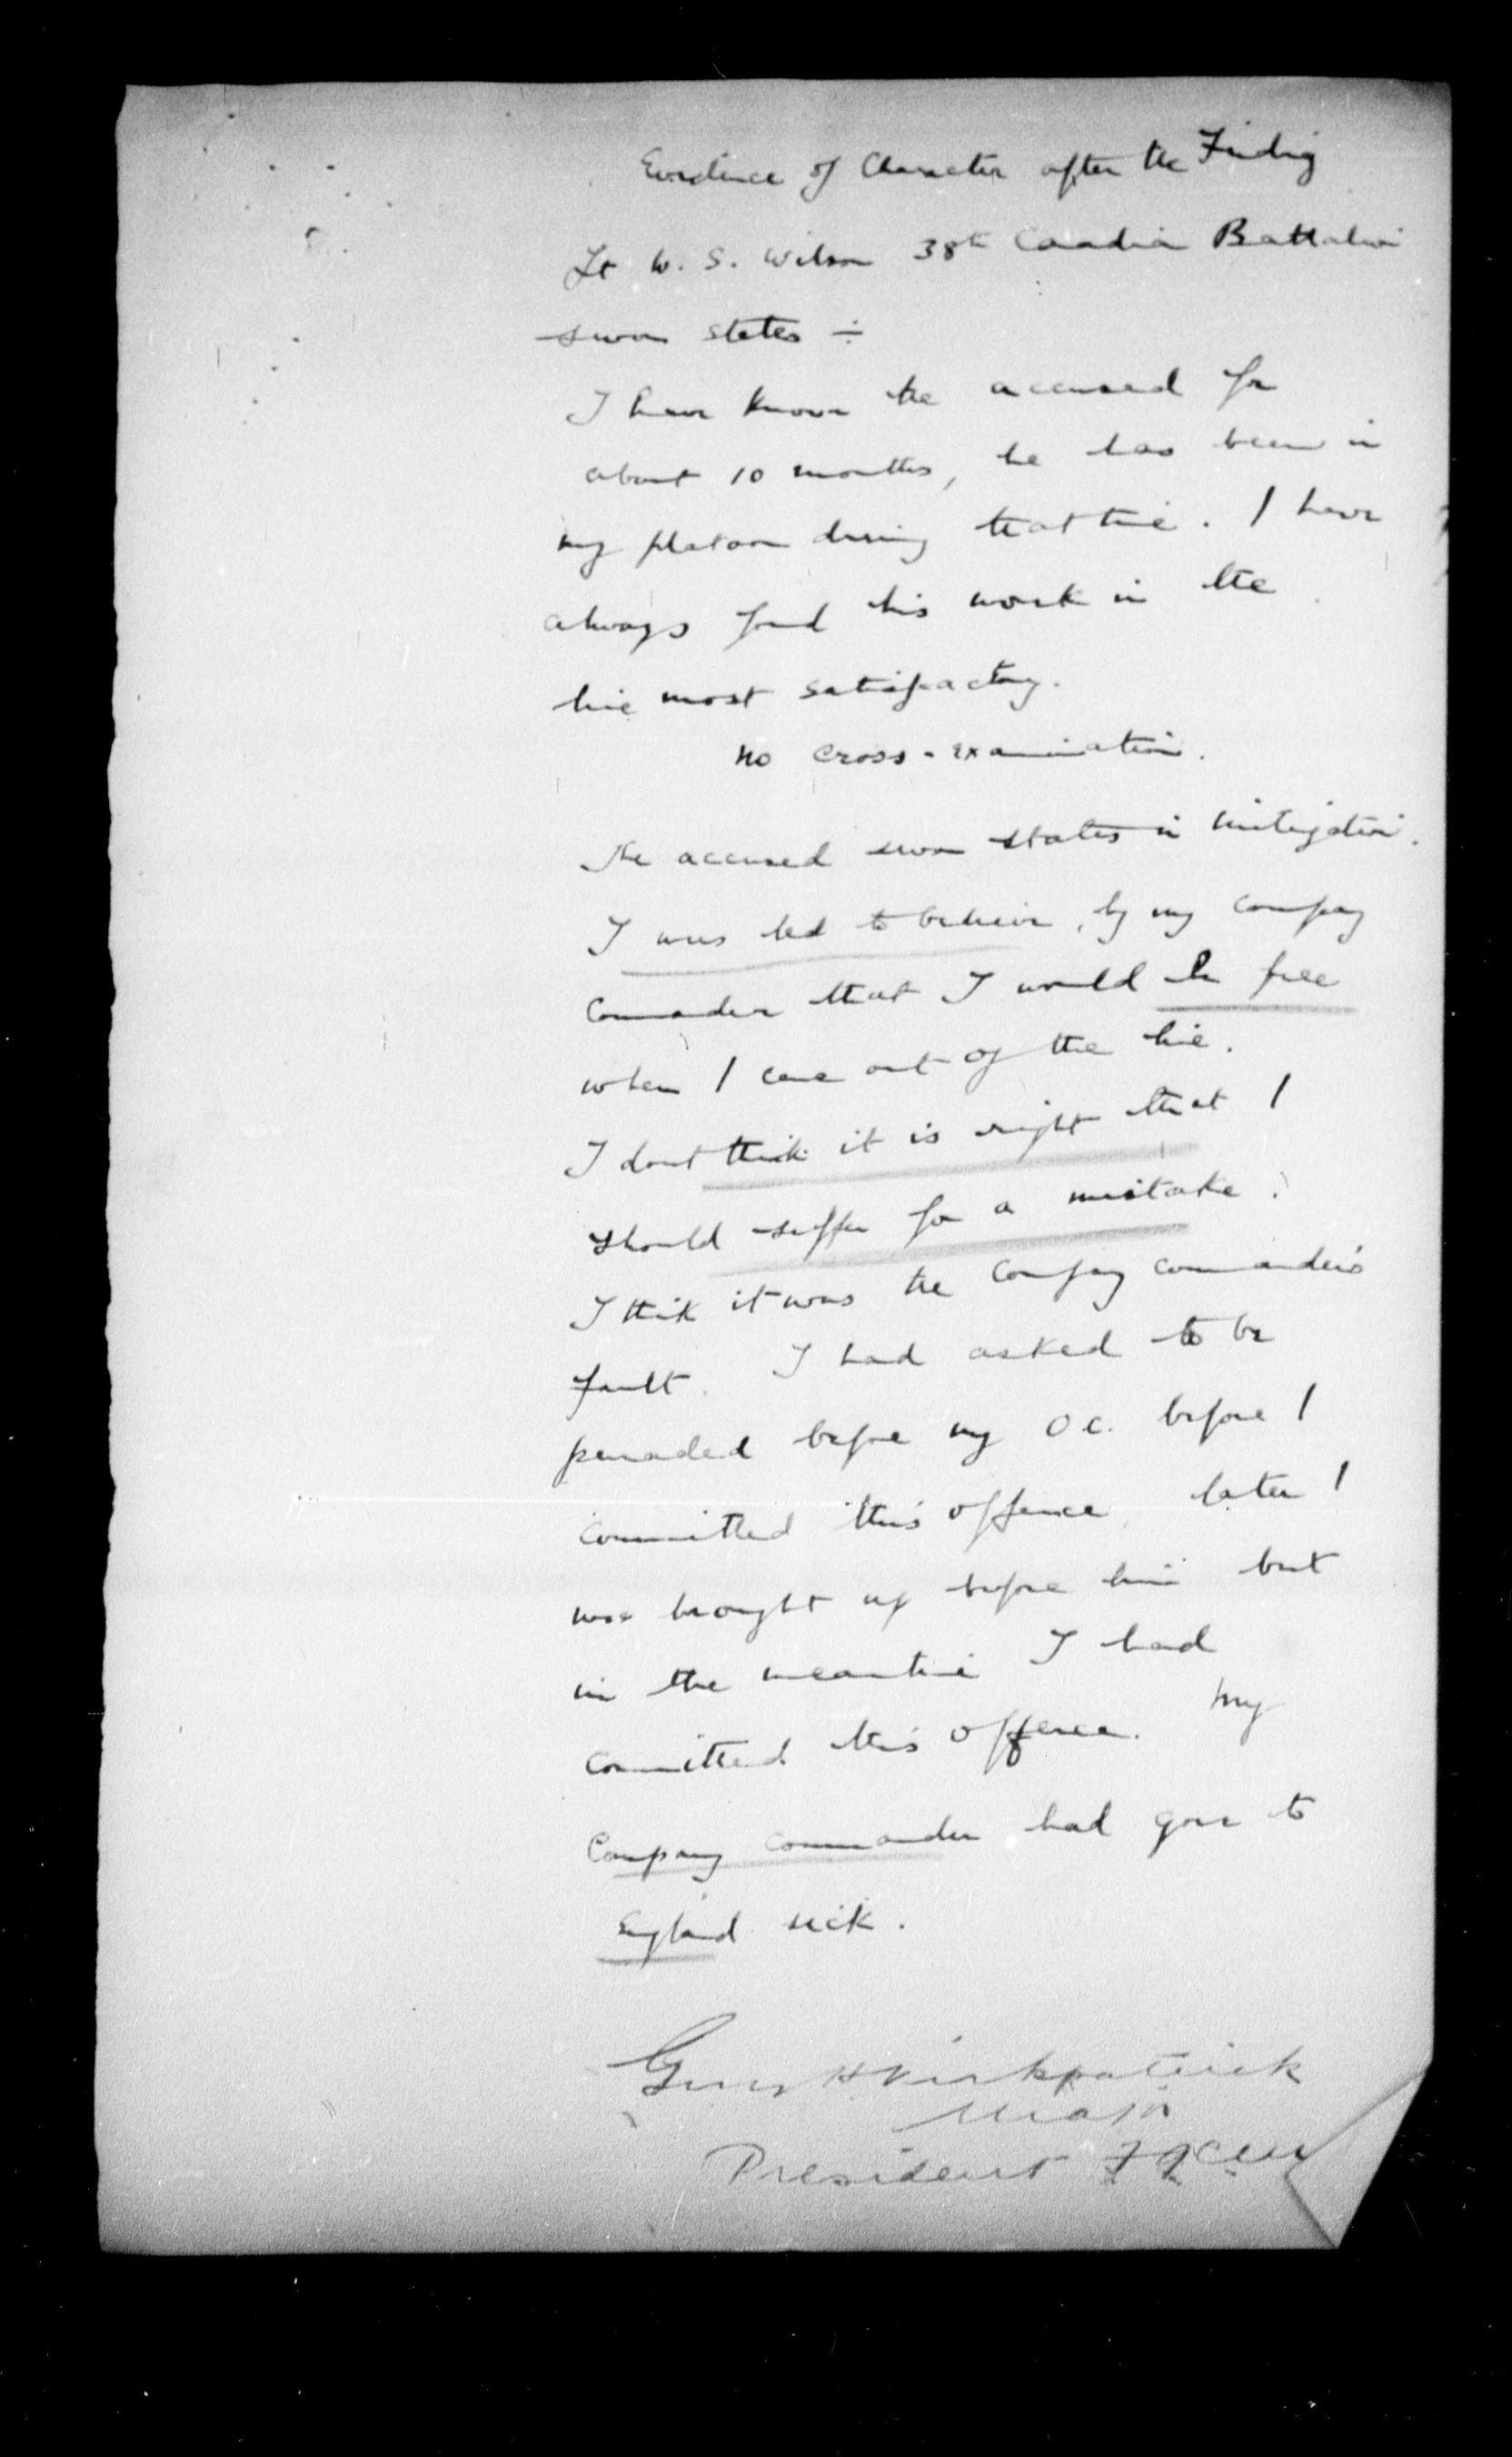 Evidence of Character after the Finding
Lt W. S. Wilson 38th Canadian Battalion
sworn states ÷
I have known the accused for
about 10 months, he has been in
my platoon during that time. I have
always found his work in the
line most satisfactory.
No cross-examination.
The accused sworn states in mitigation.
I was led to believe, by my company
Commander that I would be free
when I came out of the line.
I dont think it is right that I
should suffer for a mistake.
I think it was the Company commander's
fault. I had asked to be
paraded before my O.C. before I
committed this offence, later I
was brought up before him but
in the meantime I had
committed this offence. My
Company Commander had gone to
England sick.
Guy H Kirkpatrick
Major
President FGCM